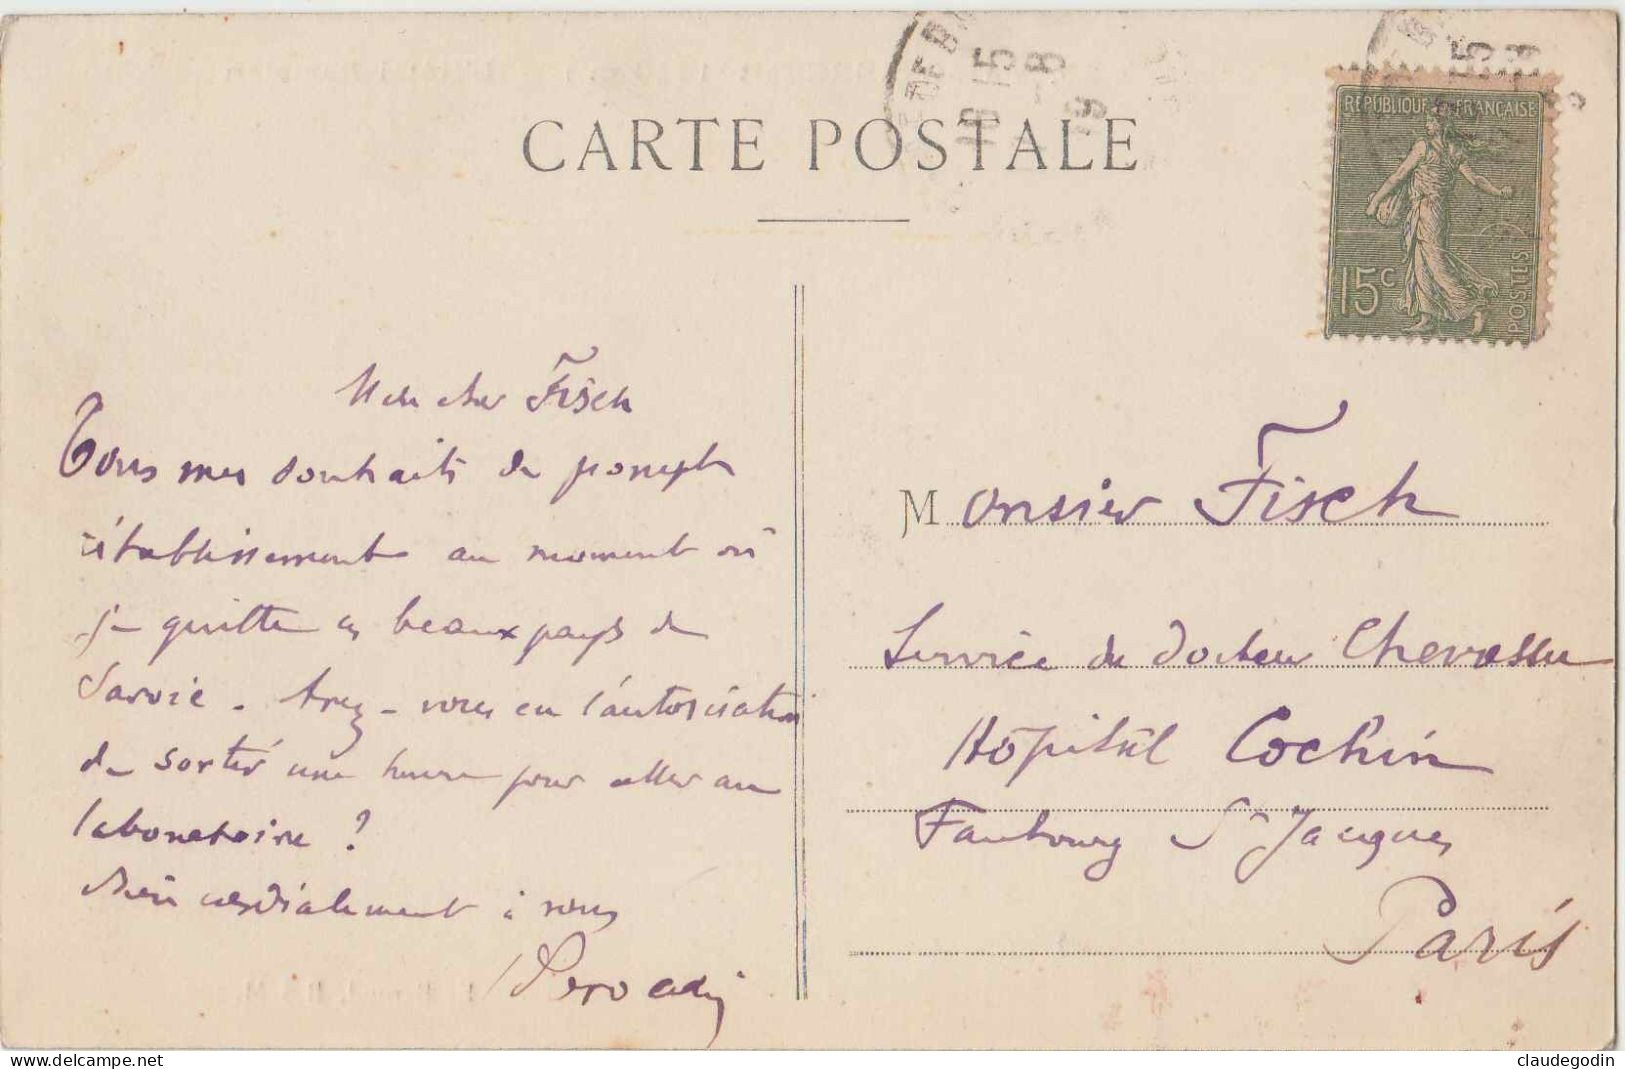 CARTE POSTALE
RÉPUBLIQUE FRANÇAISE
15c
POSTES
Mon cher Fisch
Tous mes souhaits de prompt
rétablissement au moment où
je quitte ces beaux pays de
Savoie. Avez-vous eu l'autorisation
de sortir une heure pour aller au
laboratoire ?
Bien cordialement à vous
Monsieur Fisch
Service du Docteur Chevassu
Hôpital Cochin
Faubourg St Jacques
Paris
claudegodin